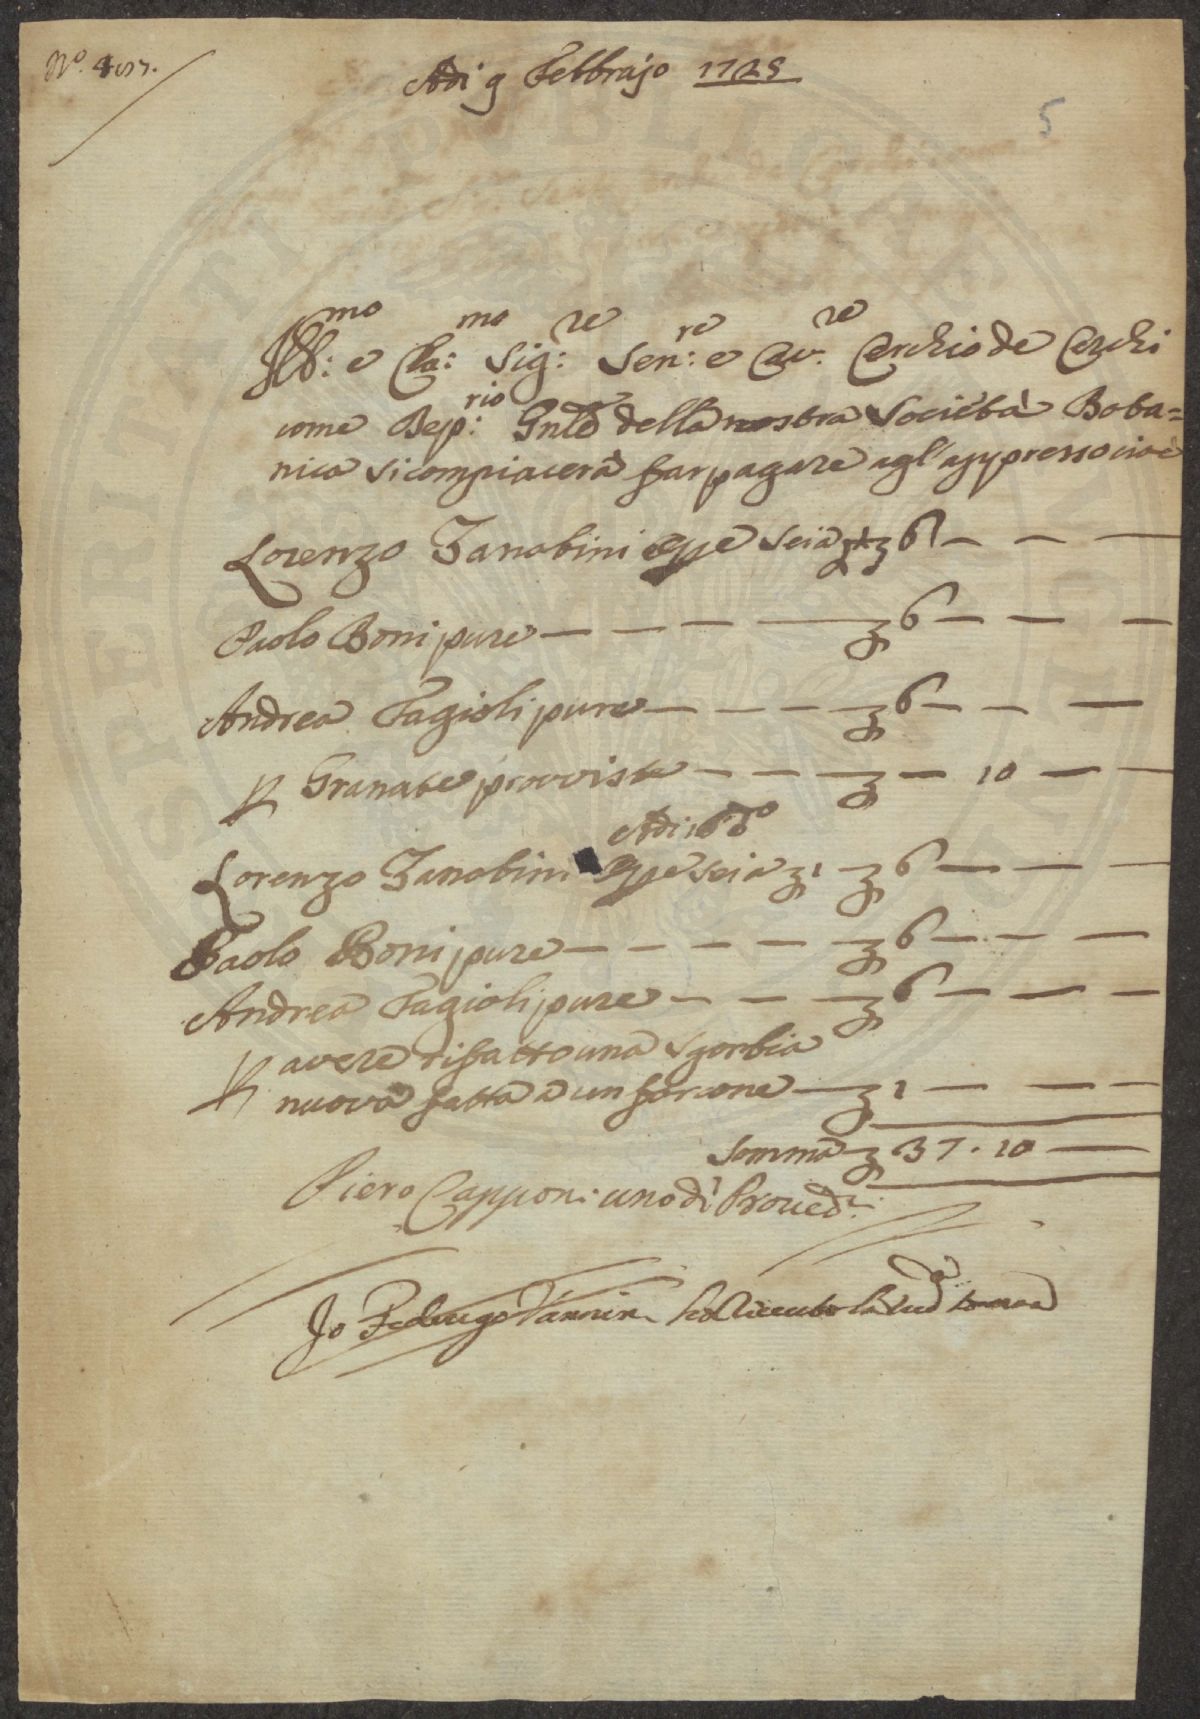 Nº. 407.
Adi 9 Febbrajo 1725
5
Ill:mo e Cla:mo Sig:re Sen:re e Cav:re Cerchio de Cerchi
come Dep:rio Gnle della nostra Società Bota=
nica si compiacerà far pagare agl'appresso cioè
Lorenzo Zanobini opre sei a 6 — — —
Paolo Boni pure — — — — 6 — — —
Andrea Fagioli pure — — — — 6 — — —
P Granate provviste — — — — 10 — —
Adi: 16 do
Lorenzo Zanobini opre sei a 1 6 — — —
Paolo Boni pure — — — — 6 — — —
Andrea Fagioli pure — — — 6 — — —
P avere rifatto una sgorbia
nuova fatta a un forcone — 1 — — —
Somma 37 . 10 —
Piero Capponi uno di Proved.ri
Io Federigo Vannini ho riceuto la sud.a somma